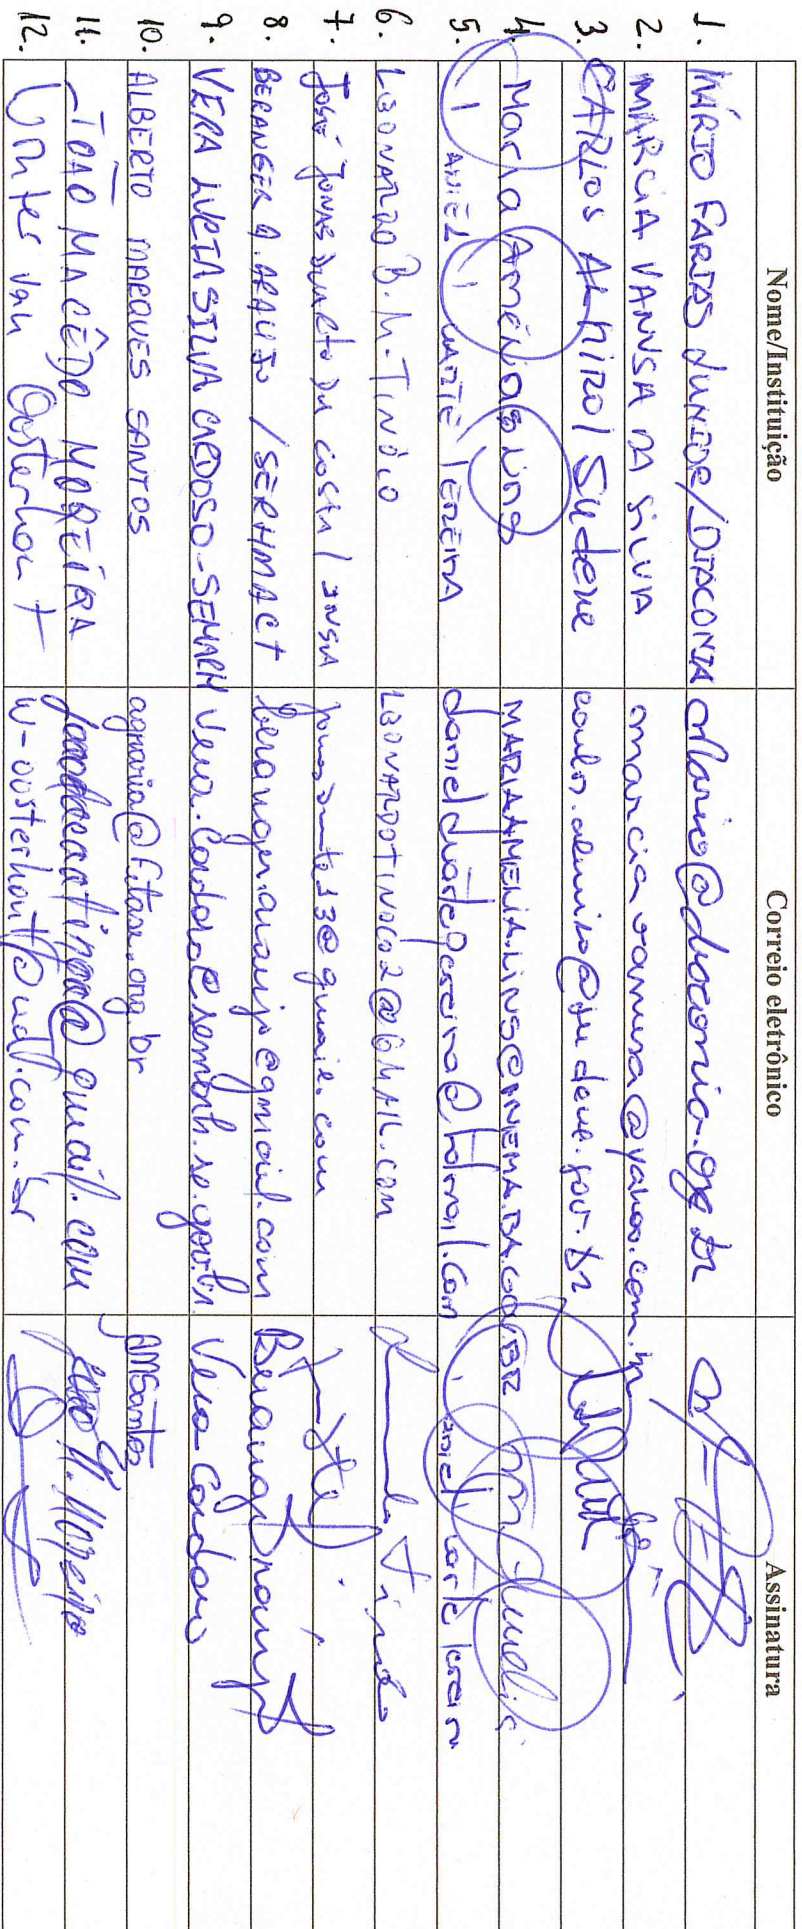 Nome/Instituição Correio eletrônico Assinatura
1. MÁRIO FARIAS JUNIOR/DIACONIA mario@diaconia.org.br
2. MARCIA VANUSA DA SILVA marciavanusa@yahoo.com.br
3. CARLOS Almiro/Sudene carlos.almiro@sudene.gov.br
4. Maria Amélia Lins MARIAAMELIA.LINS@INEMA.BA.GOV.BR
5. DANIEL DUARTE PEREIRA danielduartepereira@hotmail.com Daniel Duarte Pereira
6. LEONARDO B. M. TINÔCO LEONARDOTINOCO2@GMAIL.COM
7. José Jonas Duarte da Costa/INSA jonasduarte13@gmail.com
8. BERANGER A. ARAUJO /SERHMACT beranger.araujo@gmail.com Beranger Araújo
9. VERA LÚCIA SILVA CARDOSO-SEMARH Vera.Cardoso@semarh.se.gov.br Vera Cardoso
10. ALBERTO MARQUES SANTOS agraria@fetase.org.br AMSantos
11. JOÃO MACÊDO MOREIRA @gmail.com João M. Moreira
12. Winter van Oosterhout w-oosterhout@uol.com.br